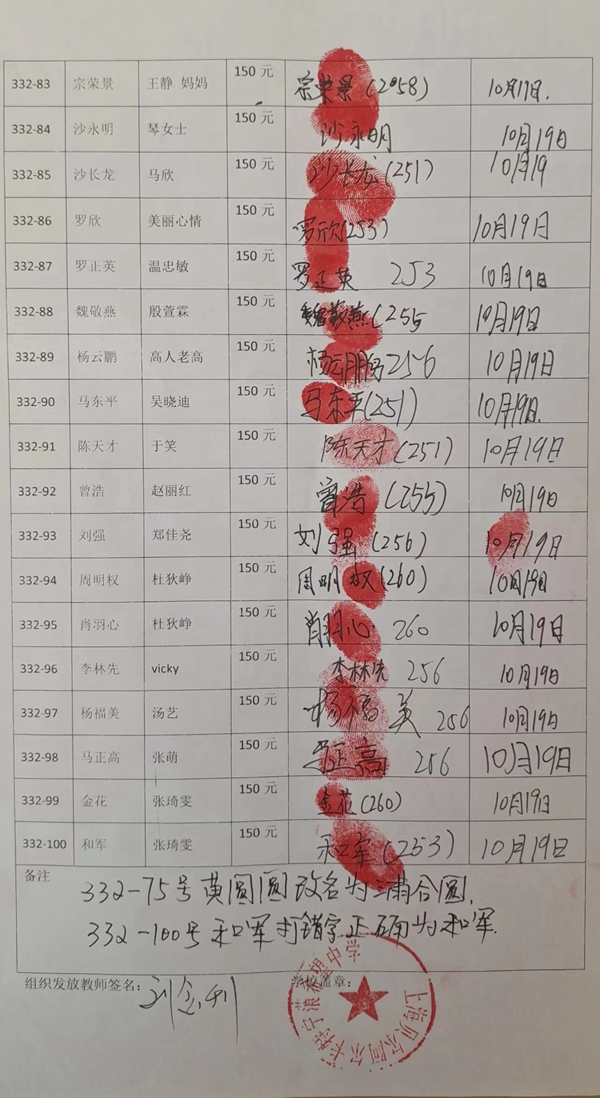 332-83 宗荣景 王静 妈妈 150 元 宗荣景(2058) 10月17日.
332-84 沙永明 琴女士 150 元 沙永明 10月19日
332-85 沙长龙 马欣 150 元 沙长龙(251) 10月19
332-86 罗欣 美丽心情 150 元 罗欣(253) 10月19日
332-87 罗正英 温忠敏 150 元 罗正英 253 10月19日
332-88 魏敬燕 殷萱霖 150 元 魏敬燕(255 10月19日
332-89 杨云鹏 高人老高 150 元 杨云鹏 256 10月19日
332-90 马东平 吴晓迪 150 元 马东平(251) 10月19日.
332-91 陈天才 于笑 150 元 陈天才(251) 10月19日
332-92 曾浩 赵丽红 150 元 曾浩(255) 10月19日
332-93 刘强 郑佳尧 150 元 刘强(256) 10月19日
332-94 周明权 杜狄峥 150 元 周明权(260) 10月19日
332-95 肖羽心 杜狄峥 150 元 肖羽心 260 10月19日
332-96 李林先 vicky 150 元 李林先 256 10月19日
332-97 杨福美 汤艺 150 元 杨福美 256 10月19日
332-98 马正高 张萌 150 元 马正高 256 10月19日
332-99 金花 张琦雯 150 元 金花(260) 10月19日
332-100 和军 张琦雯 150 元 和军(253) 10月19日
备注
332-75号黄圆圆改名为满合圆.
332-100号和军打错字正确为和军.
组织发放教师签名: 学校盖章:
上海贝尔阿尔卡特宁浪希望中学